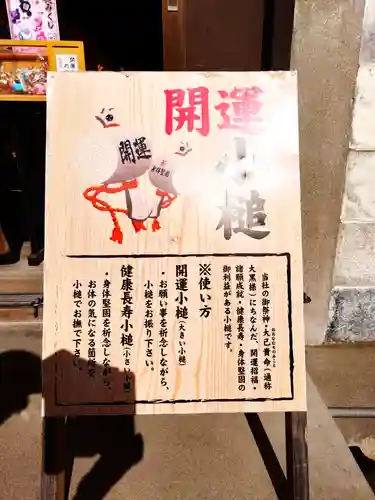 開運
小槌
開運
身体堅固
当社の御祭神・大己貴命(通称
おおなむちのみこと
大黒様)にちなんだ、開運招福・
諸願成就・健康長寿・身体堅固の
御利益がある小槌です。
※使い方
開運小槌(大きい小槌)
・お願い事を祈念しながら、
小槌をお振り下さい。
健康長寿小槌(小さい小槌)
・身体堅固を祈念しながら、
お体の気になる箇所を
小槌でお撫で下さい。